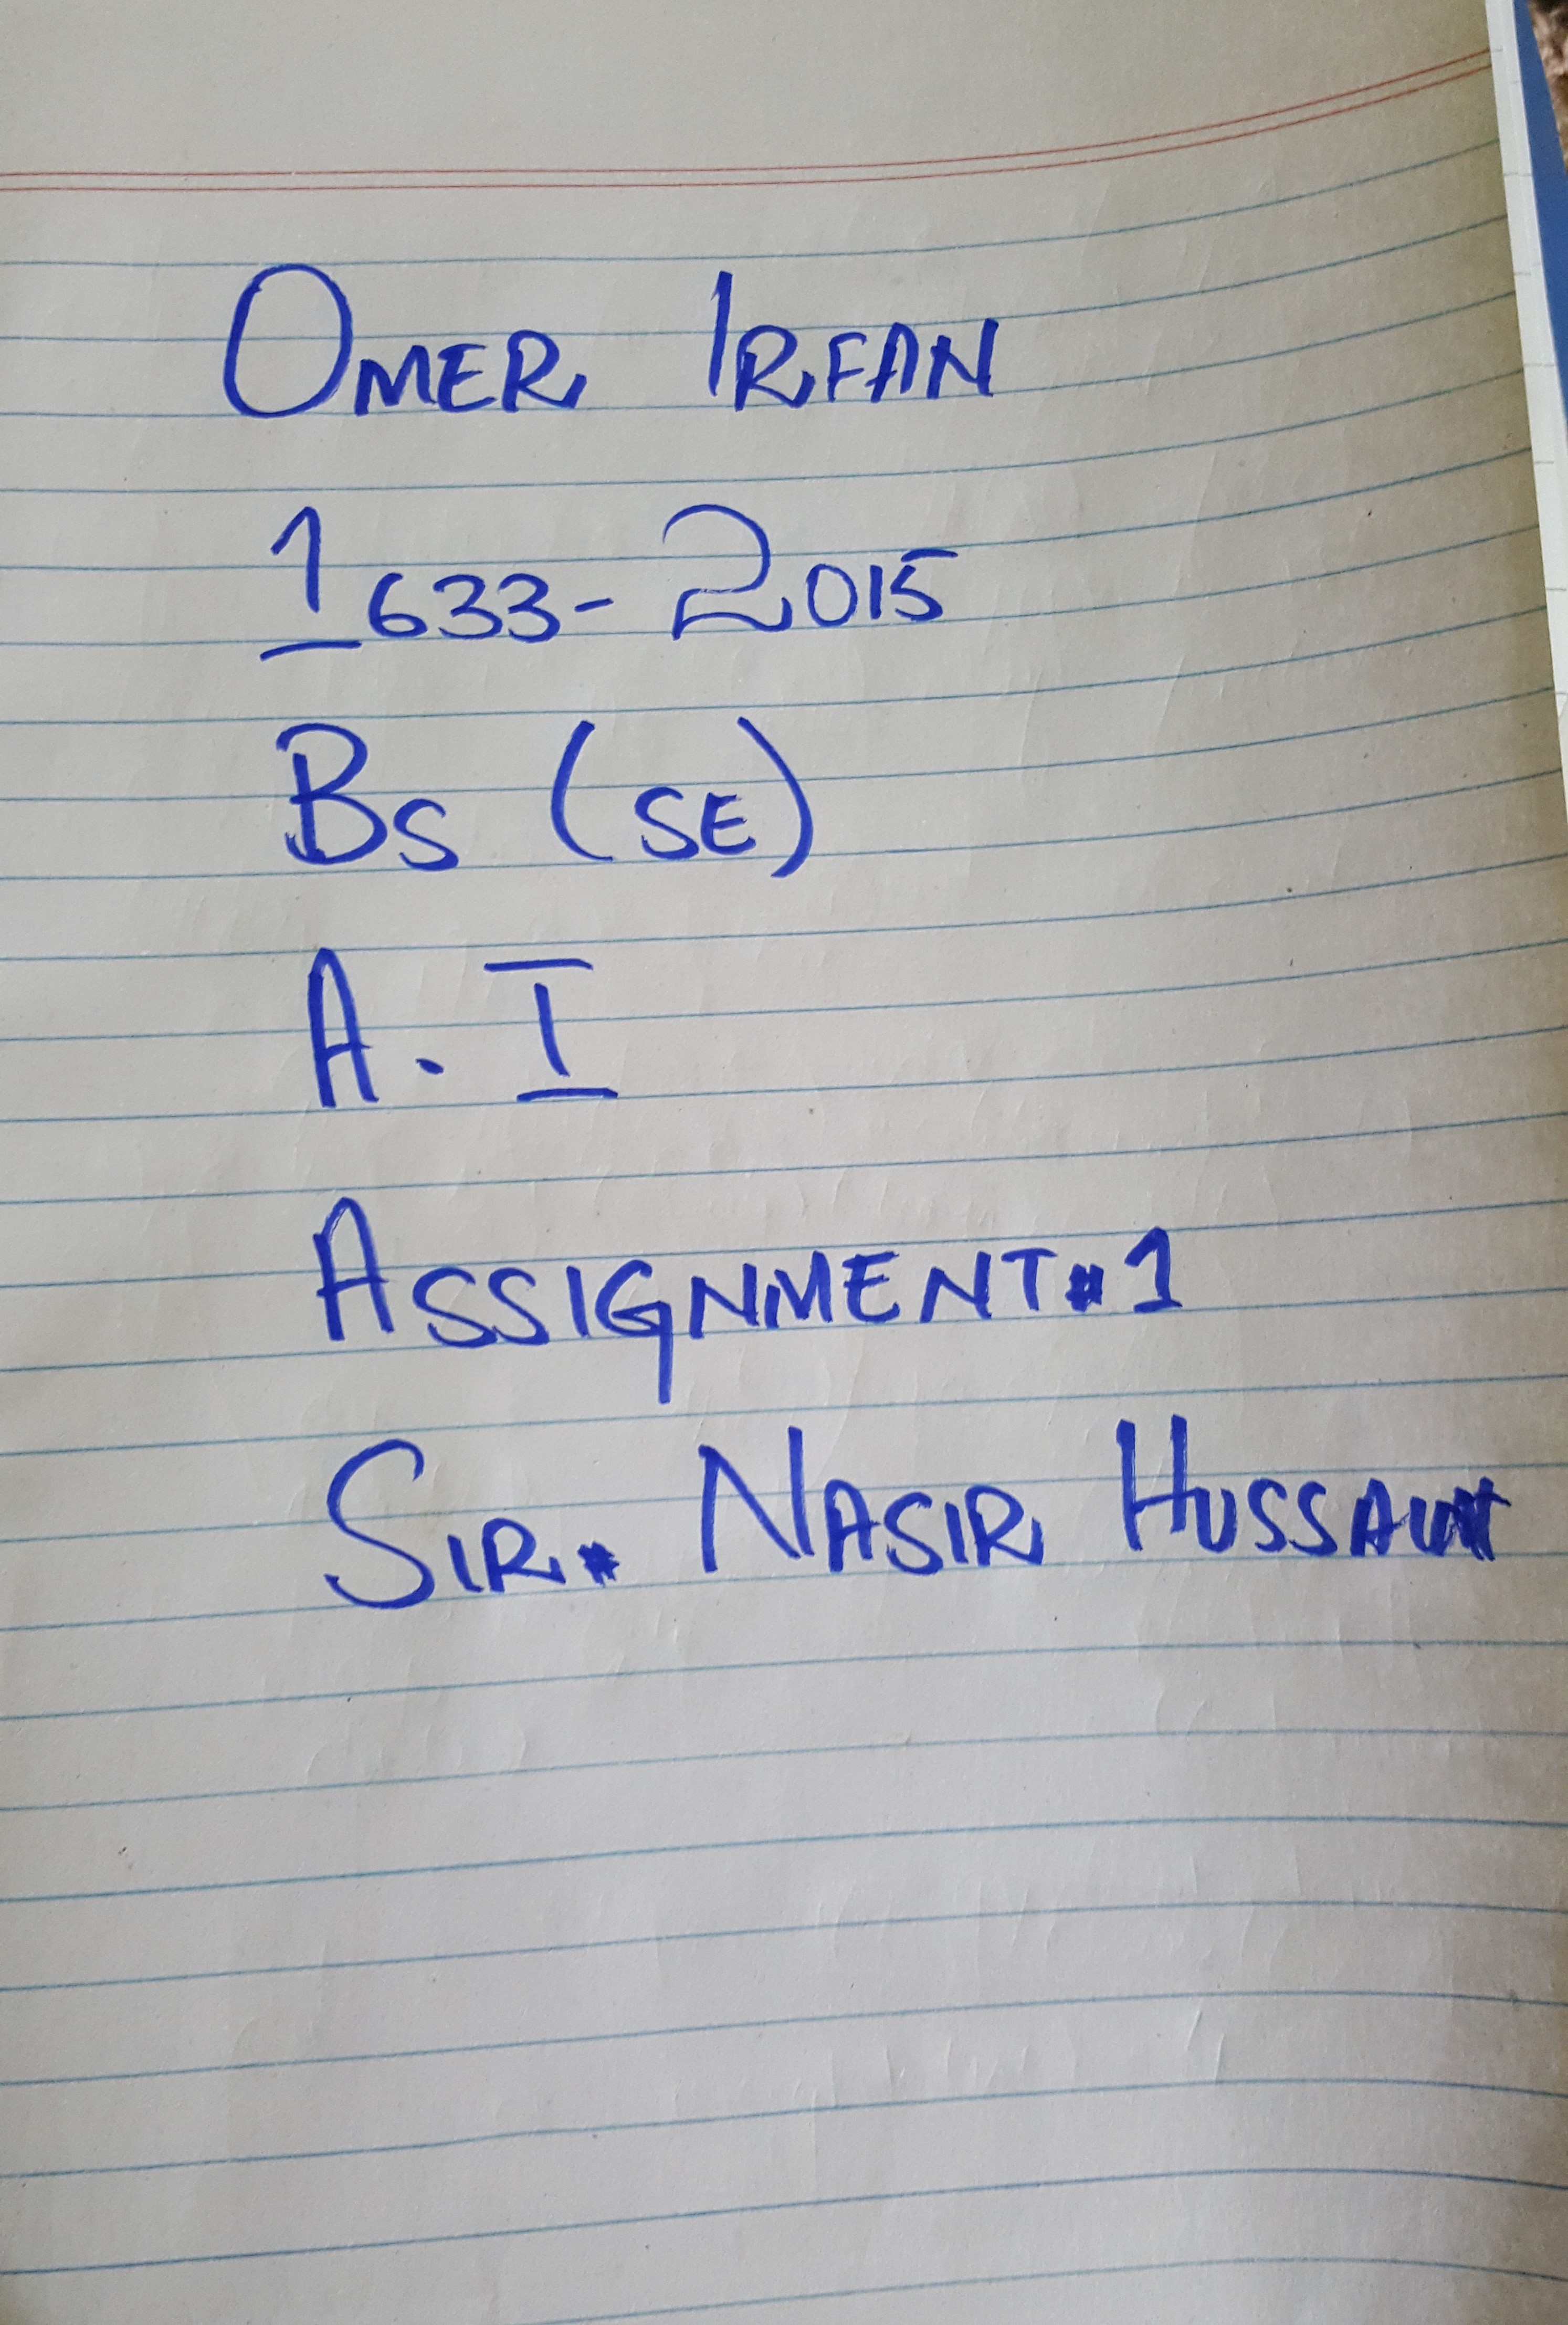 OMER IRFAN
1633-2015
BS (SE)
A.I
ASSIGNMENT#1
SIR. NASIR HUSSAIN